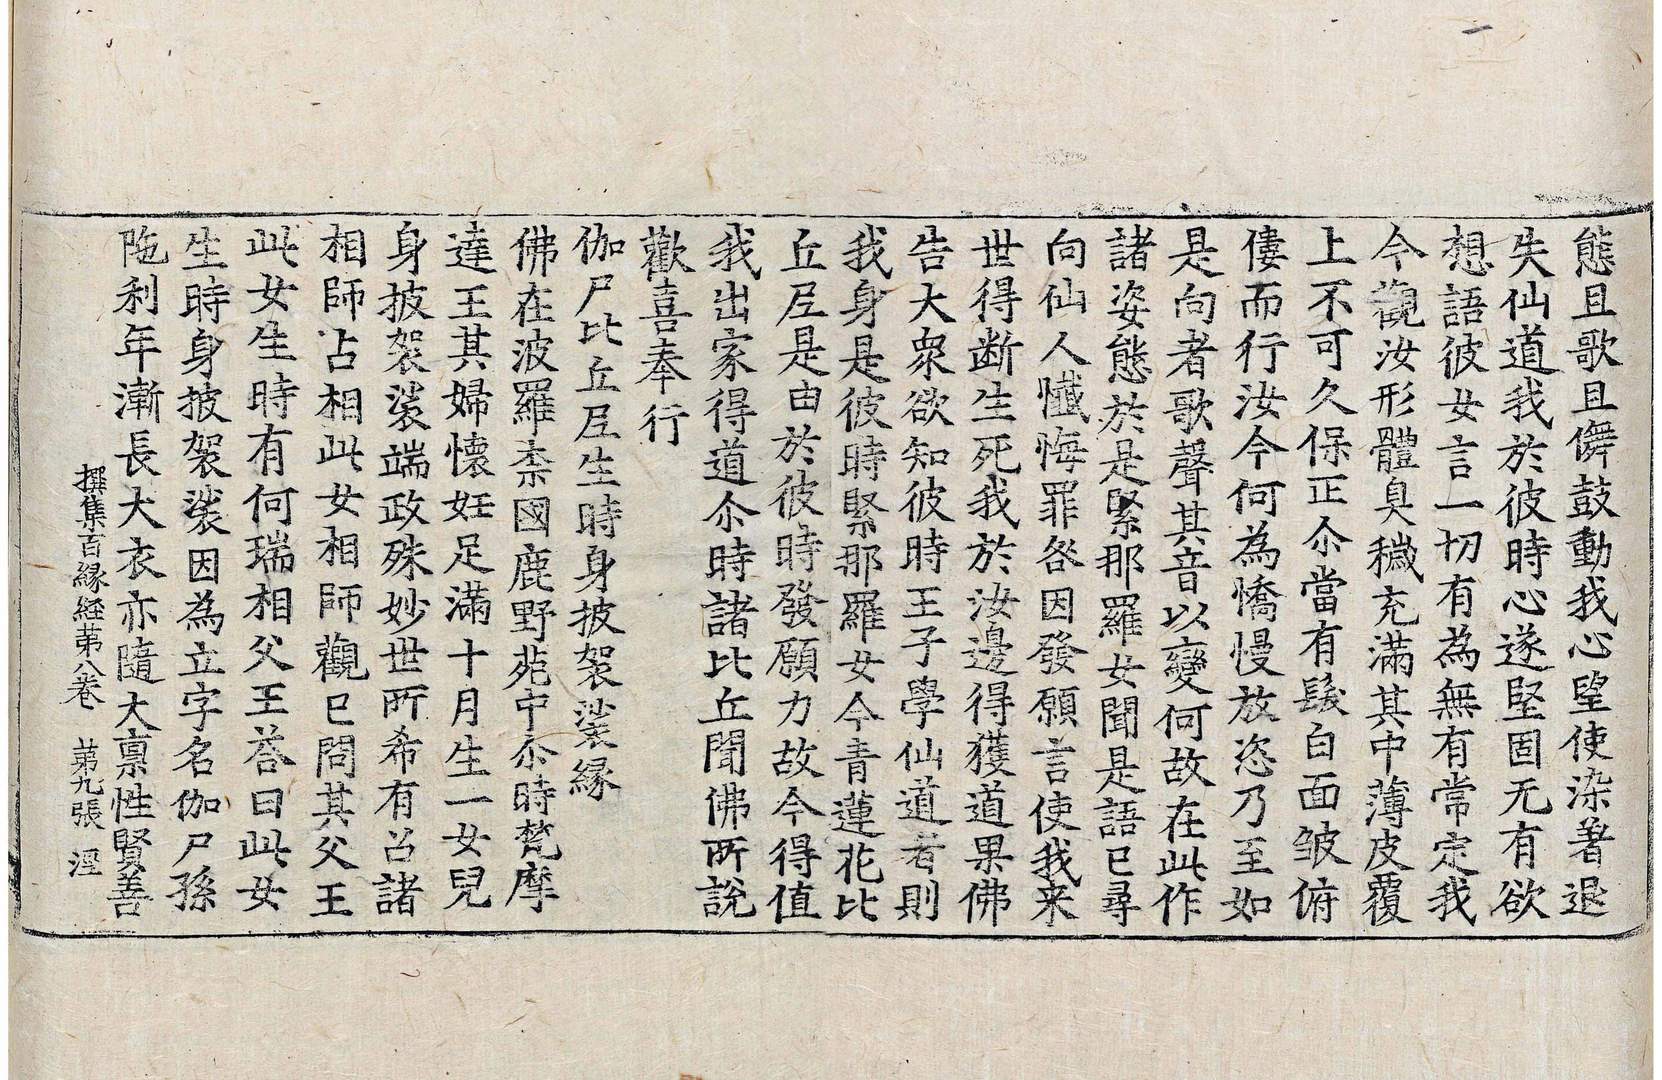 態且歌且儛鼓動我心望使染著退
失仙道我於彼時心遂堅固无有欲
想語彼女言一切有為無有常定我
今觀汝形體臭穢充滿其中薄皮覆
上不可久保正尒當有髮白面皺俯
僂而行汝今何為憍慢放恣乃至如
是向者歌聲其音以變何故在此作
諸姿態於是緊那羅女聞是語已尋
向仙人懺悔罪咎因發願言使我来
世得断生死我於汝邊得獲道果佛
告大衆欲知彼時王子學仙道者則
我身是彼時緊那羅女今青蓮花比
丘尼是由於彼時發願力故今得值
我出家得道尒時諸比丘聞佛所說
歡喜奉行
伽尸比丘尼生時身披袈裟縁
佛在波羅柰國鹿野苑中尒時梵摩
達王其婦懷妊足滿十月生一女兒
身披袈裟端政殊妙世所希有召諸
相師占相此女相師觀已問其父王
此女生時有何瑞相父王荅曰此女
生時身披袈裟因為立字名伽尸孫
陁利年漸長大衣亦隨大稟性賢善
撰集百縁経苐八卷 苐九張 涇